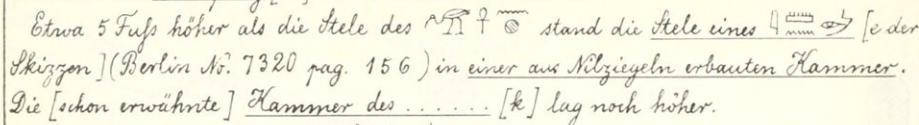 Etwa 5 Fuſs höher als die Stele des stand die Stele eines [e der
Skizzen] (Berlin No. 7320 pag. 156) in einer aus Nilziegeln erbauten Kammer.
Die [schon erwähnte] Kammer des ...... [k] lag noch höher.